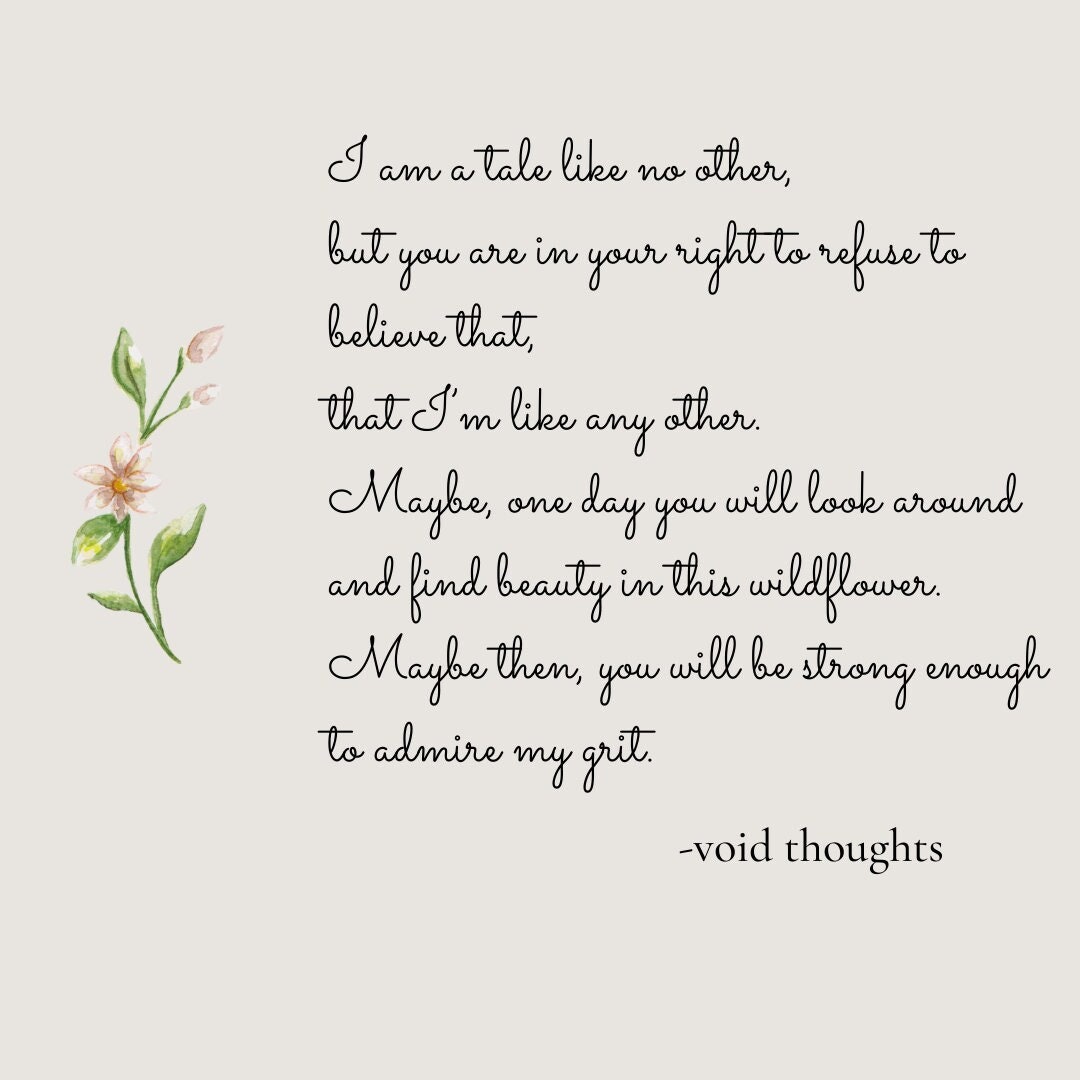 I am a tale like no other,
but you are in your right to refuse to
believe that,
that I'm like any other.
Maybe, one day you will look around
and find beauty in this wildflower.
Maybe then, you will be strong enough
to admire my grit.
-void thoughts